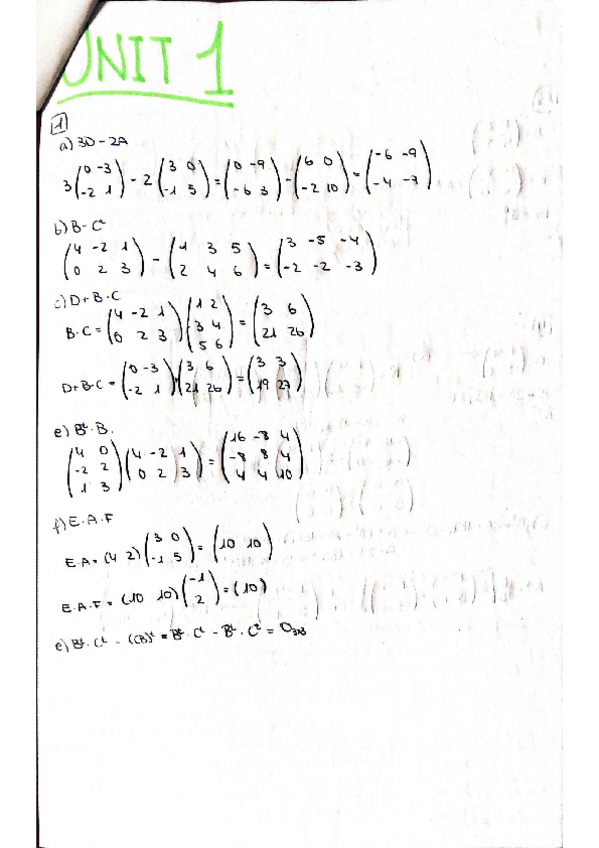 UNIT 1
1
a) 3D - 2A
3 (0 -3; -2 1) - 2 (3 0; -1 5) = (0 -9; -6 3) - (6 0; -2 10) = (-6 -9; -4 -7)
b) B - Cᵗ
(4 -2 1; 0 2 3) - (1 3 5; 2 4 6) = (3 -5 -4; -2 -2 -3)
c) D + B·C
B·C = (4 -2 1; 0 2 3) (1 2; 3 4; 5 6) = (3 6; 21 26)
D+B·C = (0 -3; -2 1) + (3 6; 21 26) = (3 3; 19 27)
e) Bᵗ·B.
(4 0; -2 2; 1 3) (4 -2 1; 0 2 3) = (16 -8 4; -8 8 4; 4 4 10)
f) E·A·F
E·A = (4 2) (3 0; -1 5) = (10 10)
E·A·F = (10 10) (-1; 2) = (10)
e) Bᵗ·Cᵗ - (CB)ᵗ = Bᵗ·Cᵗ - Bᵗ·Cᵗ = O₃ₓ₃